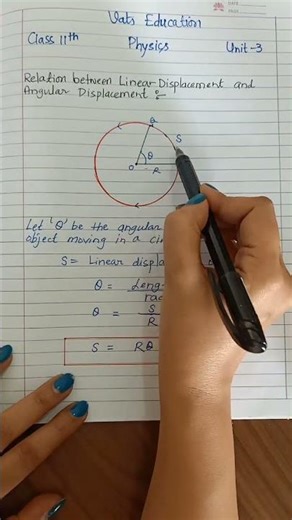 Vats Education
Class 11th Physics Unit-3
Relation between Linear Displacement and
Angular Displacement :-
Q
S
θ
O R
Let 'θ' be the angular
object moving in a
S = Linear
θ =
θ = S
R
S = Rθ